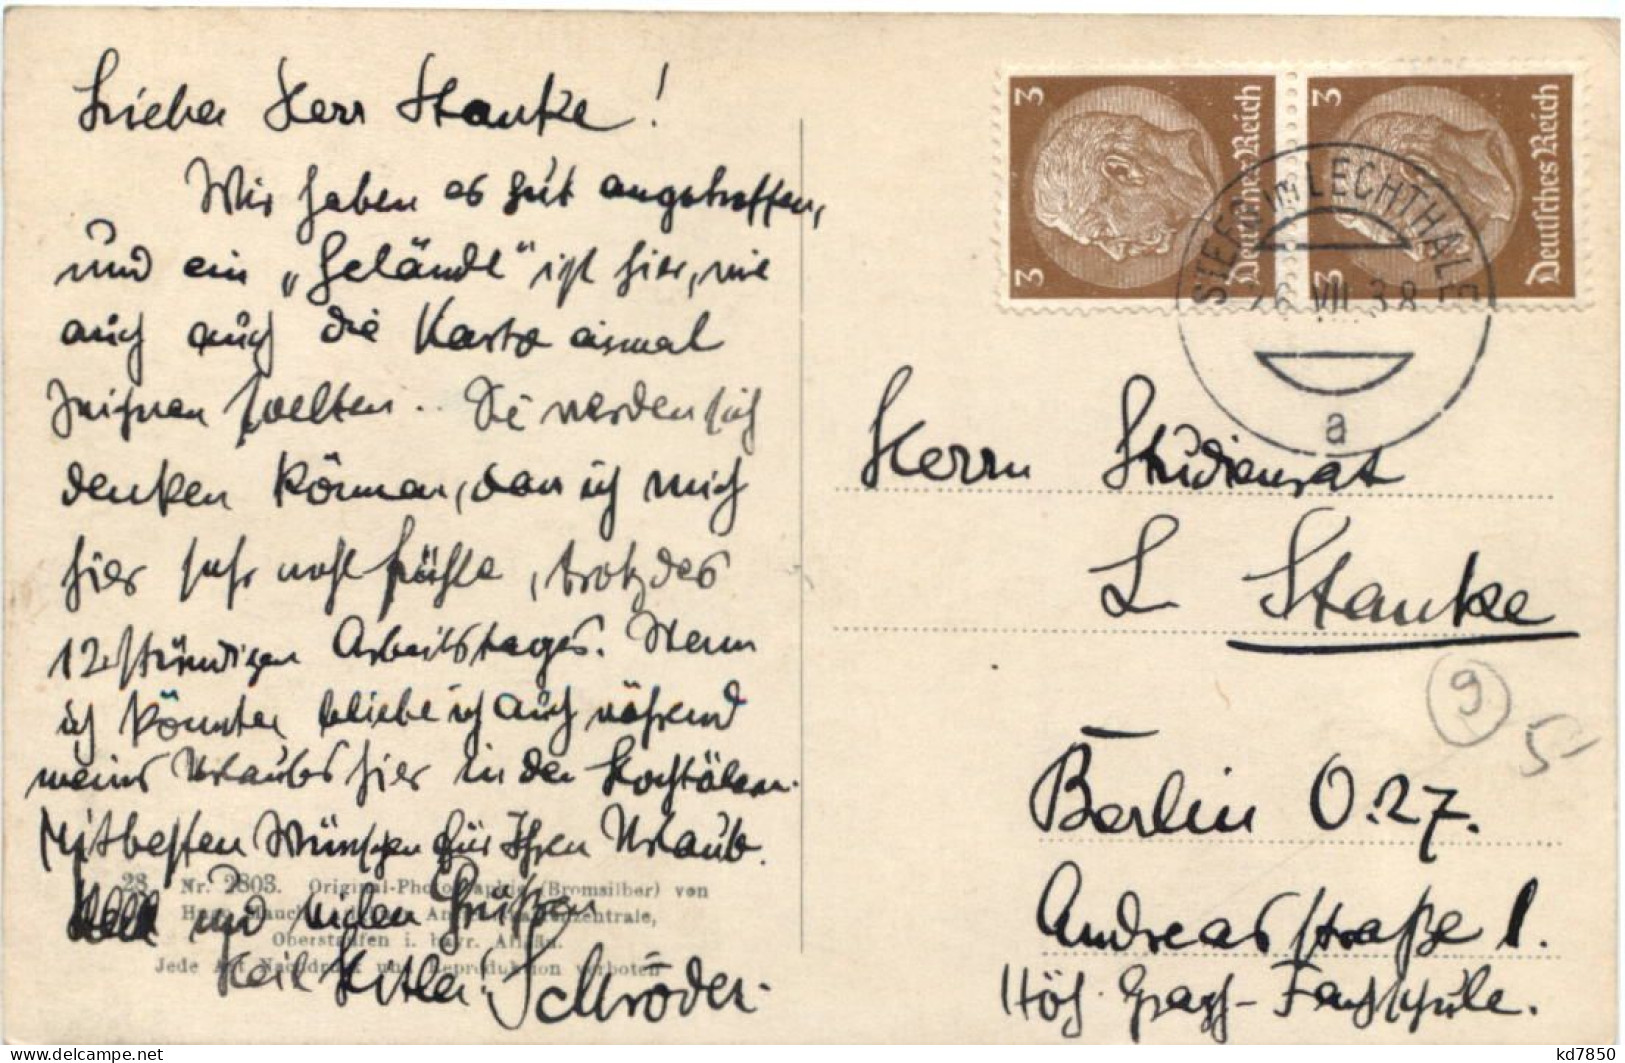 Lieber Herr Stanke!
Wir haben es gut angetroffen,
und ein „Gelände" ist hier, wie
auch auch die Karte einmal
zeichnen sollten.. Sie werden sich
denken können, dan ich mich
hier sehr wohl fühle, trotz des
12stündigen Arbeitstages. Wenn
ich könnte, bliebe ich auch während
meines Urlaubs hier in den Hochtälern.
Mit besten Wünschen für Ihren Urlaub
und vielen Grüßen
Heil Hitler! Schröder.
23 Nr. 2803. Original-Photographie (Bromsilber) von
Hugo
Oberstaufen i. bayr. Allgäu.
Jede Art Nachdruck und Reproduktion verboten
3 3 Deutsches Reich
3 3 Deutsches Reich
STEEG IM LECHTHALE
VII 38
a
Herrn Studienrat
L Stanke
9
5
Berlin O.27.
Andreasstraße 1.
Höh. Graph-Fachschule.
kd7850